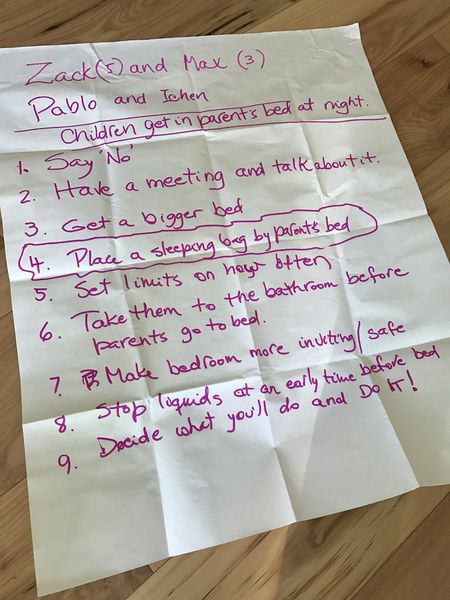 Zack(5) and Max (3)
Pablo and Ichen
Children get in parent's bed at night.
1. Say 'No'
2. Have a meeting and talk about it.
3. Get a bigger bed
4. Place a sleeping bag by parent's bed
5. Set limits on how often
6. Take them to the bathroom before
parents go to bed.
7. Make bedroom more inviting/safe
8. Stop liquids at an early time before bed
9. Decide what you'll do and DO IT!